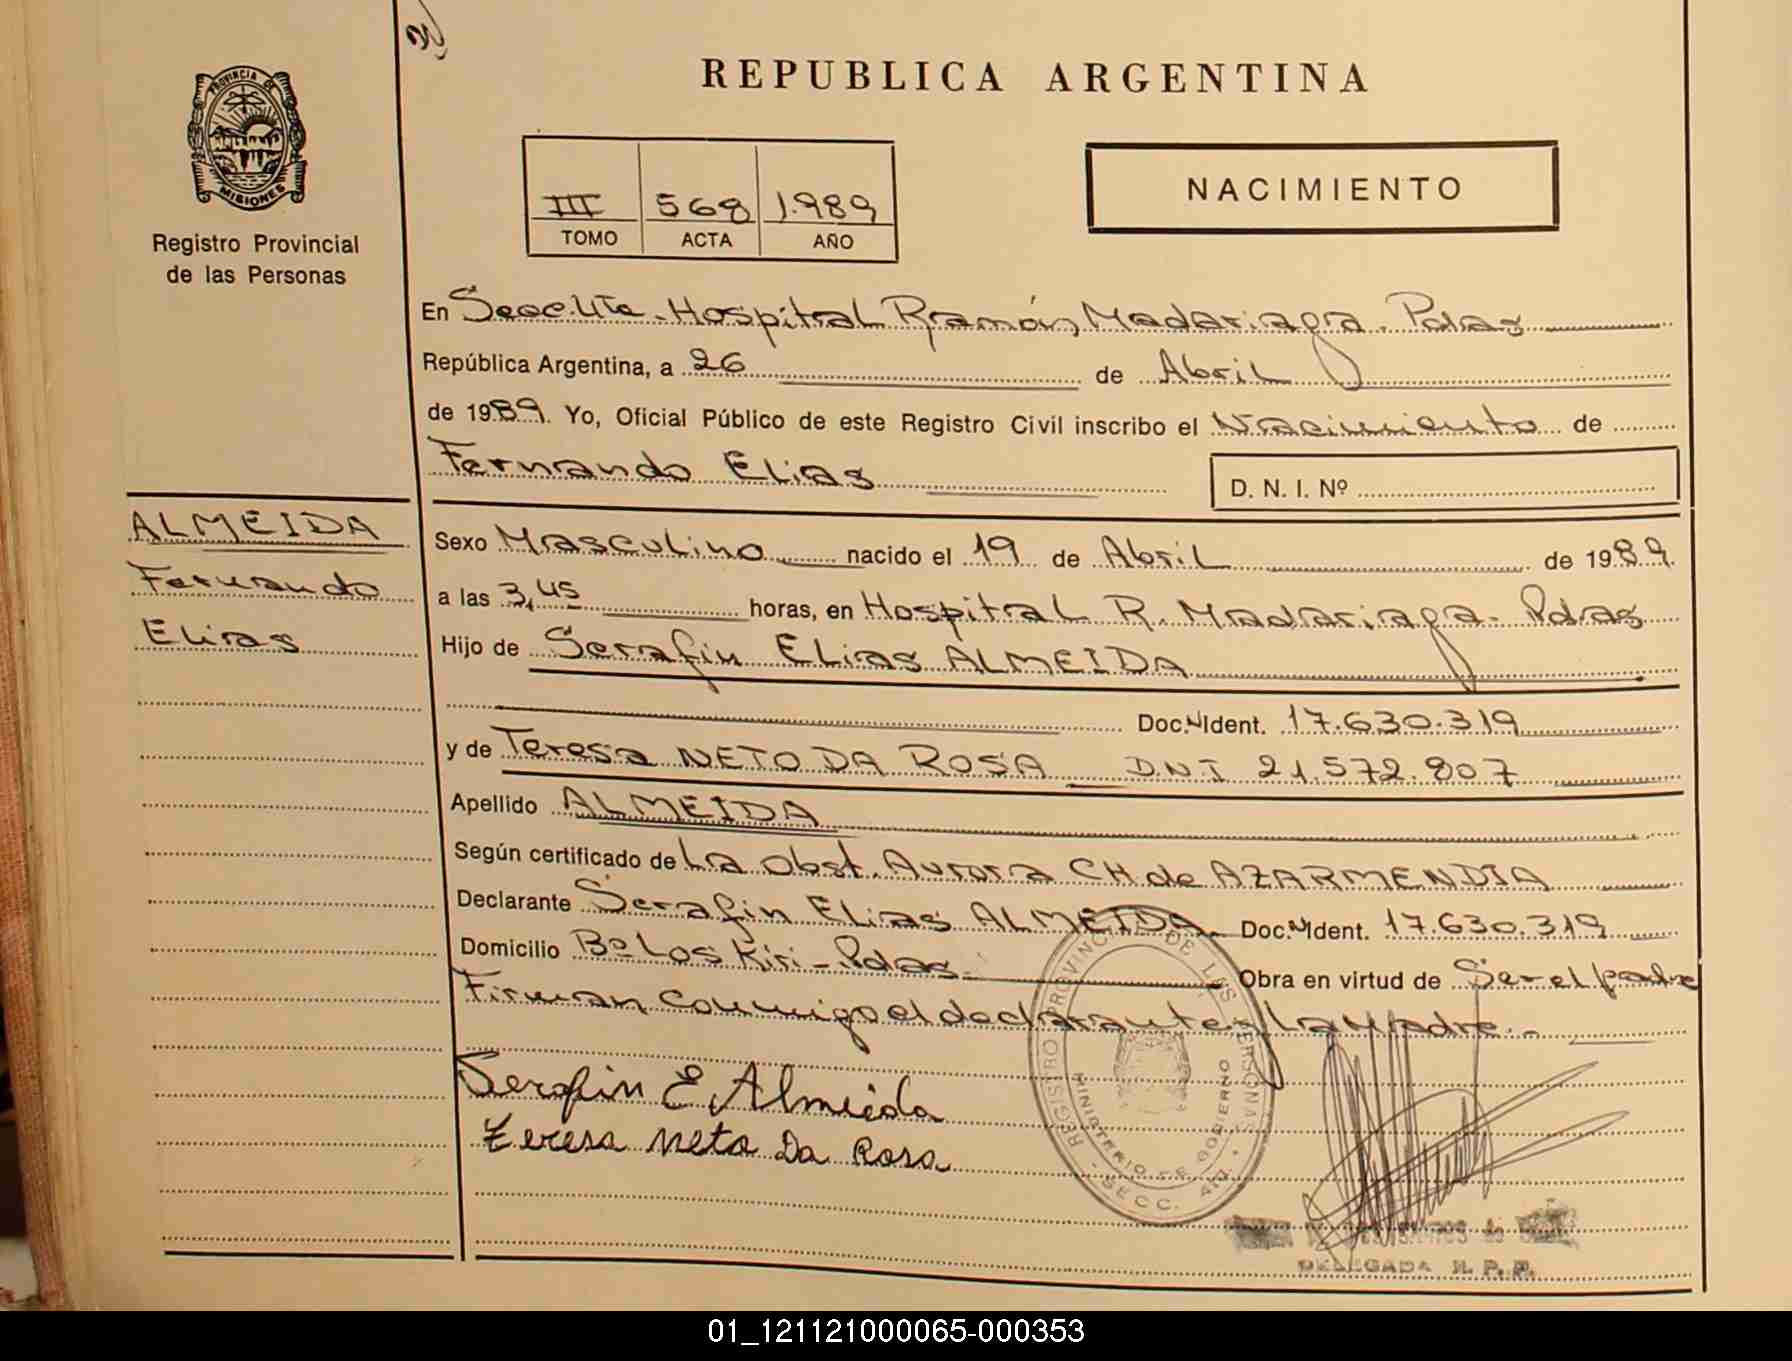 REPUBLICA ARGENTINA
PROVINCIA DE
MISIONES
Registro Provincial
de las Personas
III 568 1.989
TOMO ACTA AÑO
NACIMIENTO
En Secc. 4ta. Hospital Ramón Madariaga. Pdas
República Argentina, a 26 de Abril
de 1989. Yo, Oficial Público de este Registro Civil inscribo el Nacimiento de
Fernando Elias
D. N. I. Nº
ALMEIDA
Fernando
Elias
Sexo Masculino nacido el 19 de Abril de 1989.
a las 3,45 horas, en Hospital R. Madariaga - Pdas
Hijo de Serafin Elias ALMEIDA
Doc. N Ident. 17.630.319
y de Teresa NETO DA ROSA DNI 21.572.807
Apellido ALMEIDA
Según certificado de La Obst. Aurora CH de AZARMENDIA
Declarante Serafin Elias ALMEIDA. Doc. N Ident. 17.630.319
Domicilio Bº Los Kiri - Pdas. Obra en virtud de Ser el padre
Firman conmigo el declarante y La Madre.-
Serafin E Almeida
Teresa Neto Da Rosa
REGISTRO PROVINCIAL DE LAS PERSONAS
MINISTERIO DE GOBIERNO
SECC. 4ta.
DELEGADA R. P. P.
01_121121000065-000353